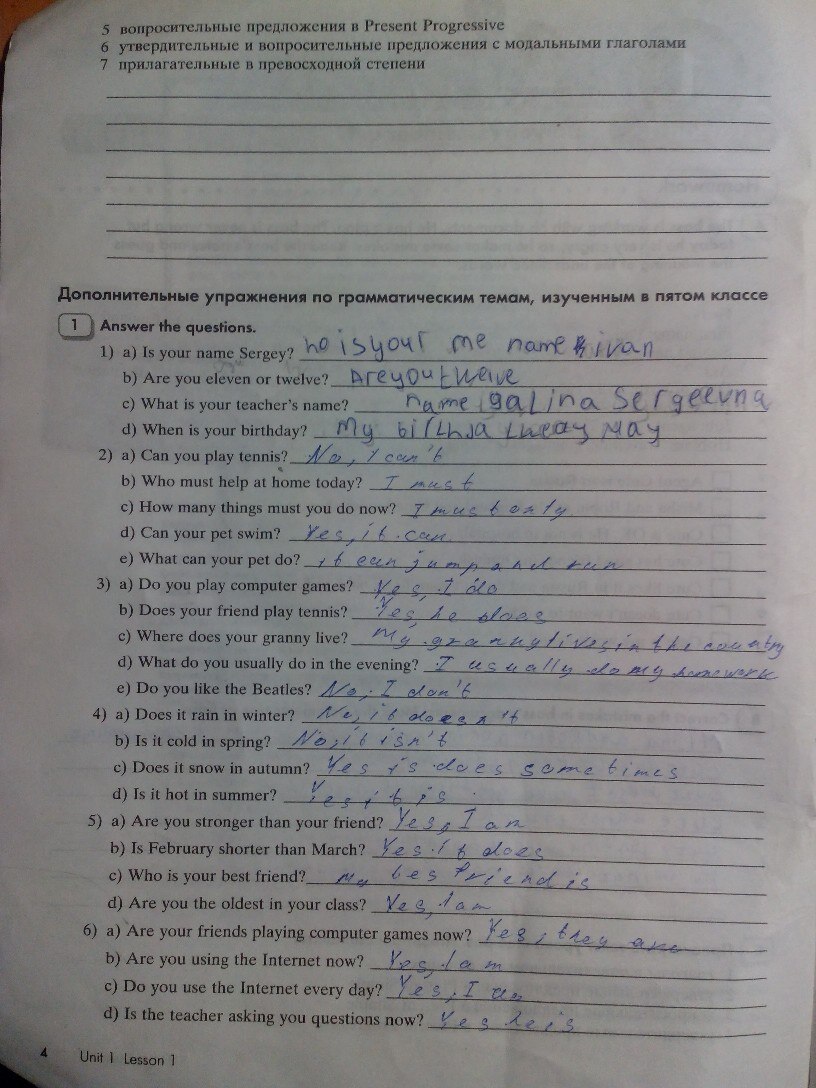 5 вопросительные предложения в Present Progressive
6 утвердительные и вопросительные предложения с модальными глаголами
7 прилагательные в превосходной степени
Дополнительные упражнения по грамматическим темам, изученным в пятом классе
1 Answer the questions.
1) a) Is your name Sergey? no is your me name ivan
b) Are you eleven or twelve? Are you twelve
c) What is your teacher's name? name galina Sergeevna
d) When is your birthday? My May
2) a) Can you play tennis? No, I can't
b) Who must help at home today? I must
c) How many things must you do now? I must only
d) Can your pet swim? Yes, it can
e) What can your pet do? it can jump and run
3) a) Do you play computer games? Yes, I do
b) Does your friend play tennis? Yes, he does
c) Where does your granny live? My granny lives in the country
d) What do you usually do in the evening? I usually do my homework
e) Do you like the Beatles? No, I don't
4) a) Does it rain in winter? No, it doesn't
b) Is it cold in spring? No, it isn't
c) Does it snow in autumn? Yes is does sometimes
d) Is it hot in summer? Yes it is
5) a) Are you stronger than your friend? Yes, I am
b) Is February shorter than March? Yes it does
c) Who is your best friend? My bes friend is
d) Are you the oldest in your class? Yes, I am
6) a) Are your friends playing computer games now? Yes, they are
b) Are you using the Internet now? Yes, I am
c) Do you use the Internet every day? Yes, I am
d) Is the teacher asking you questions now? Yes he is
4 Unit 1 Lesson 1